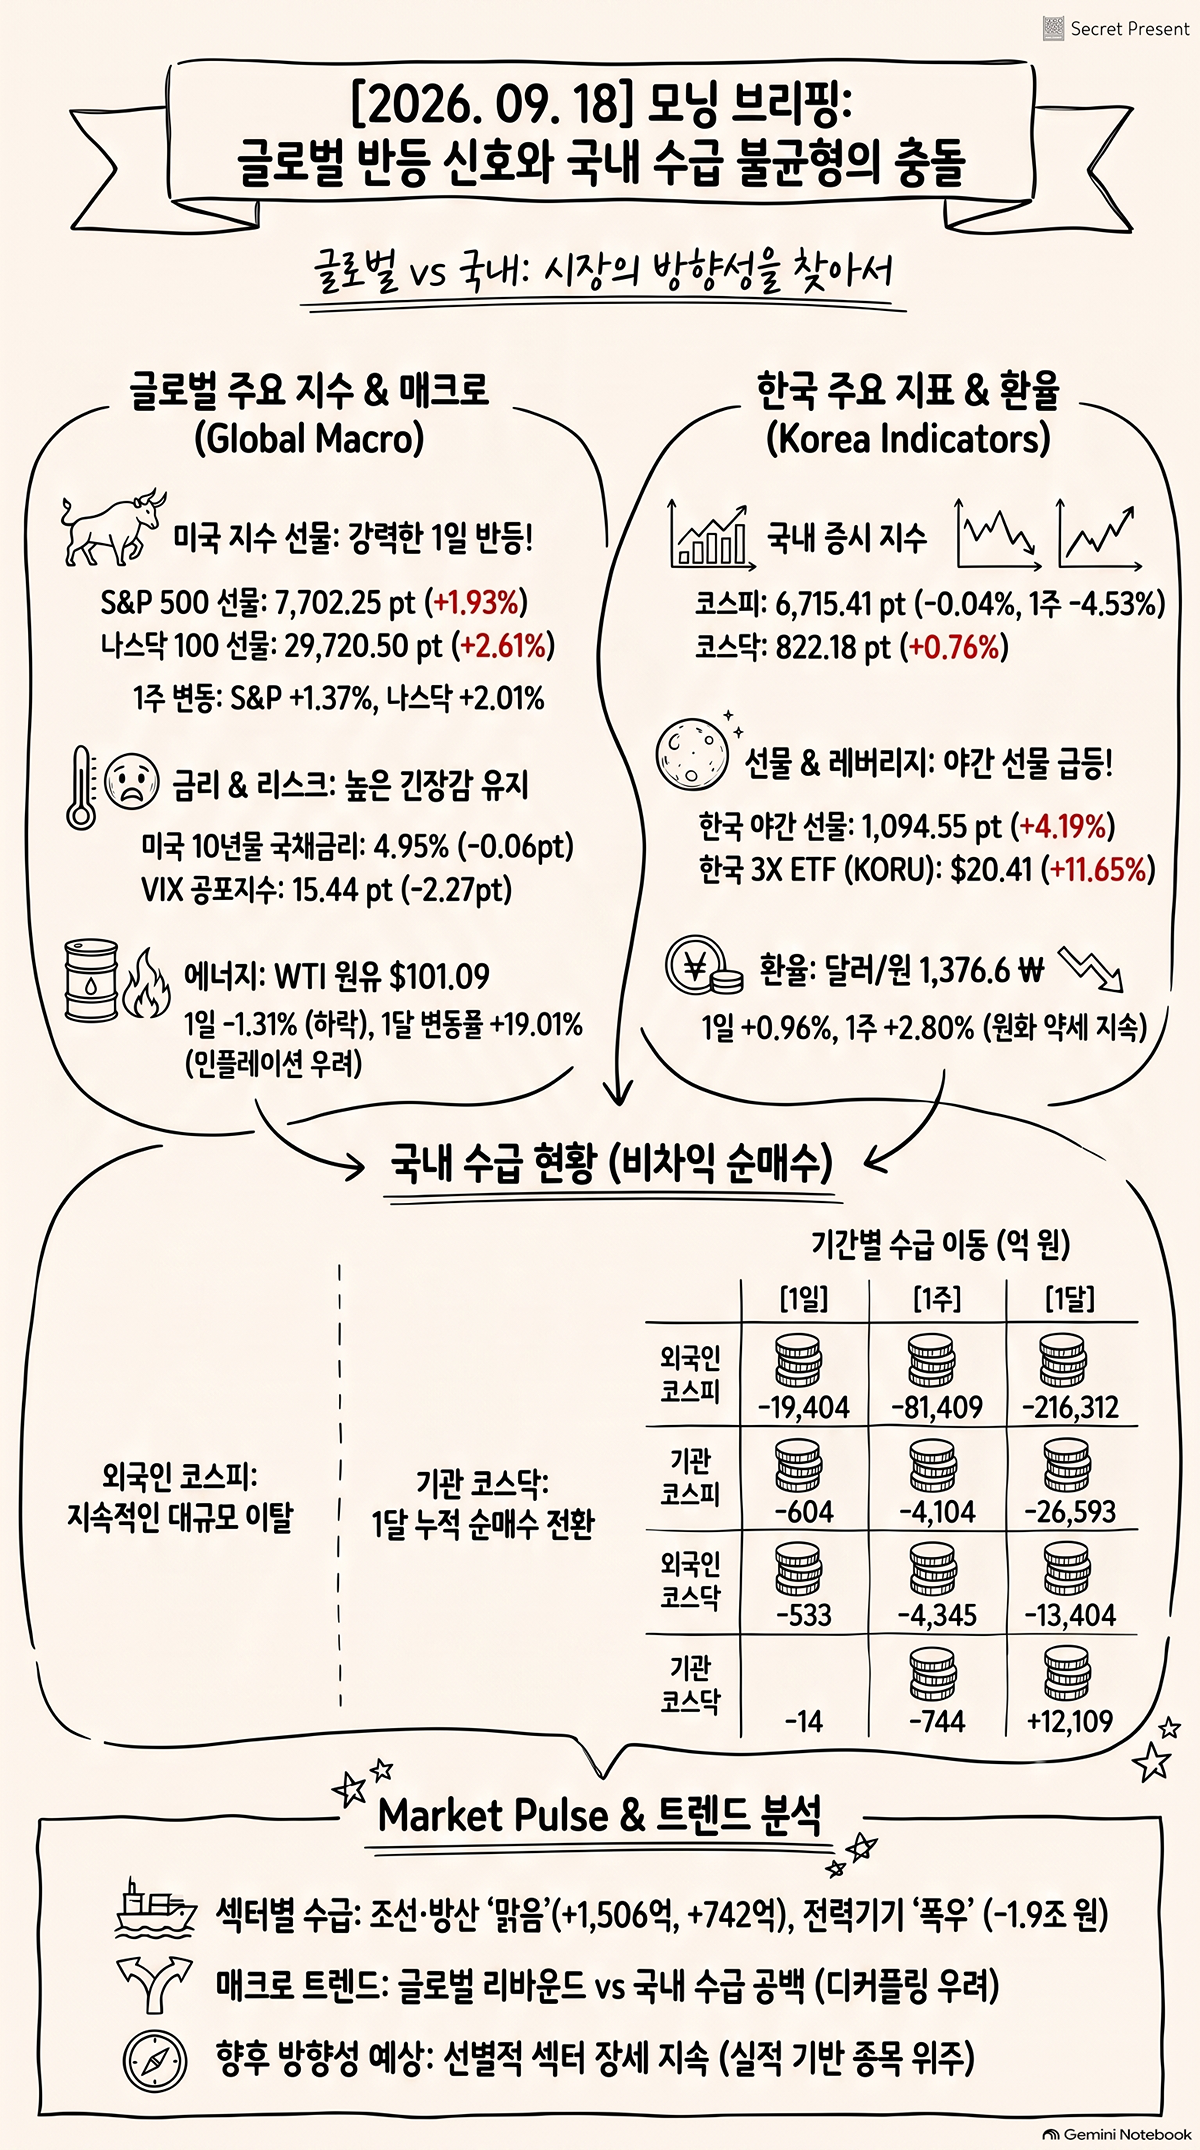 Secret Present
[2026. 09. 18] 모닝 브리핑:
글로벌 반등 신호와 국내 수급 불균형의 충돌
글로벌 vs 국내: 시장의 방향성을 찾아서
글로벌 주요 지수 & 매크로
(Global Macro)
미국 지수 선물: 강력한 1일 반등!
S&P 500 선물: 7,702.25 pt (+1.93%)
나스닥 100 선물: 29,720.50 pt (+2.61%)
1주 변동: S&P +1.37%, 나스닥 +2.01%
금리 & 리스크: 높은 긴장감 유지
미국 10년물 국채금리: 4.95% (-0.06pt)
VIX 공포지수: 15.44 pt (-2.27pt)
에너지: WTI 원유 $101.09
1일 -1.31% (하락), 1달 변동률 +19.01%
(인플레이션 우려)
한국 주요 지표 & 환율
(Korea Indicators)
국내 증시 지수
코스피: 6,715.41 pt (-0.04%, 1주 -4.53%)
코스닥: 822.18 pt (+0.76%)
선물 & 레버리지: 야간 선물 급등!
한국 야간 선물: 1,094.55 pt (+4.19%)
한국 3X ETF (KORU): $20.41 (+11.65%)
¥
환율: 달러/원 1,376.6 ₩
1일 +0.96%, 1주 +2.80% (원화 약세 지속)
국내 수급 현황 (비차익 순매수)
외국인 코스피:
지속적인 대규모 이탈
기관 코스닥:
1달 누적 순매수 전환
기간별 수급 이동 (억 원)
[1일] [1주] [1달]
외국인
코스피
-19,404 -81,409 -216,312
기관
코스피
-604 -4,104 -26,593
외국인
코스닥
-533 -4,345 -13,404
기관
코스닥
-14 -744 +12,109
Market Pulse & 트렌드 분석
섹터별 수급: 조선·방산 ‘맑음’(+1,506억, +742억), 전력기기 ‘폭우’ (-1.9조 원)
매크로 트렌드: 글로벌 리바운드 vs 국내 수급 공백 (디커플링 우려)
향후 방향성 예상: 선별적 섹터 장세 지속 (실적 기반 종목 위주)
Gemini Notebook